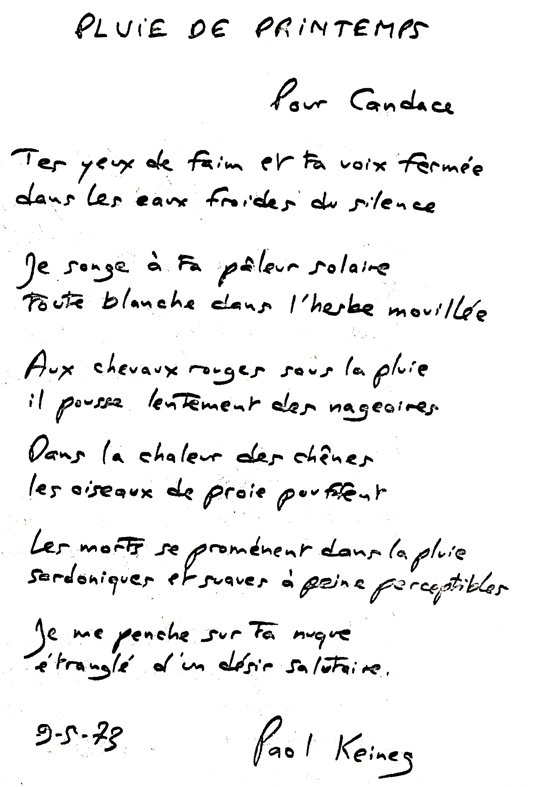 PLUIE DE PRINTEMPS
Pour Candace
Tes yeux de faim et ta voix fermée
dans les eaux froides du silence
Je songe à ta pâleur solaire
toute blanche dans l'herbe mouillée
Aux chevaux rouges sous la pluie
il pousse lentement des nageoires
Dans la chaleur des chênes
les oiseaux de proie pouffent
Les morts se promènent dans la pluie
sardoniques et suaves à peine perceptibles
Je me penche sur ta nuque
étranglé d'un désir salutaire.
9-5-73
Paol Keineg